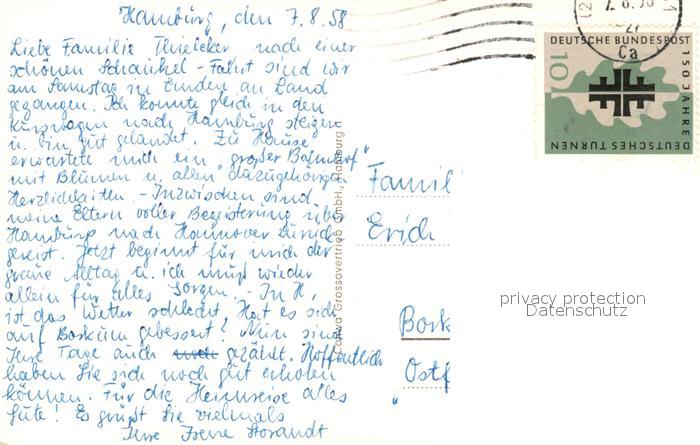 Hamburg, den 7.8.58
Liebe Familie Thieleker nach einer
schönen Schaukel-Fahrt sind wir
am Samstag in Emden an Land
gegangen. Ich konnte gleich in den
Kurswagen nach Hamburg steigen
u. bin gut gelandet. Zu Hause
erwartete mich ein "großer Bahnhof"
mit Blumen u. allen dazugehörigen
Herzlichkeiten. - Inzwischen sind
meine Eltern voller Begeisterung über
Hamburg nach Hannover zurück
gereist. Jetzt beginnt für mich der
graue Alltag u. ich muß wieder
allein für alles sorgen. - In H,
ist das Wetter schlecht, Hat es sich
auf Borkum gebessert? Nun sind
Ihre Tage auch gezählt. Hoffentlich
haben Sie sich noch gut erholen
können. Für die Heimreise alles
Gute! Es grüßt Sie vielmals
Ihre Irene Storandt
Grossovertrieb GmbH, Hamburg
Famil
Erich
Bork
Ostf
DEUTSCHE BUNDESPOST
150 JAHRE
DEUTSCHES TURNEN
10
Ca
privacy protection
Datenschutz